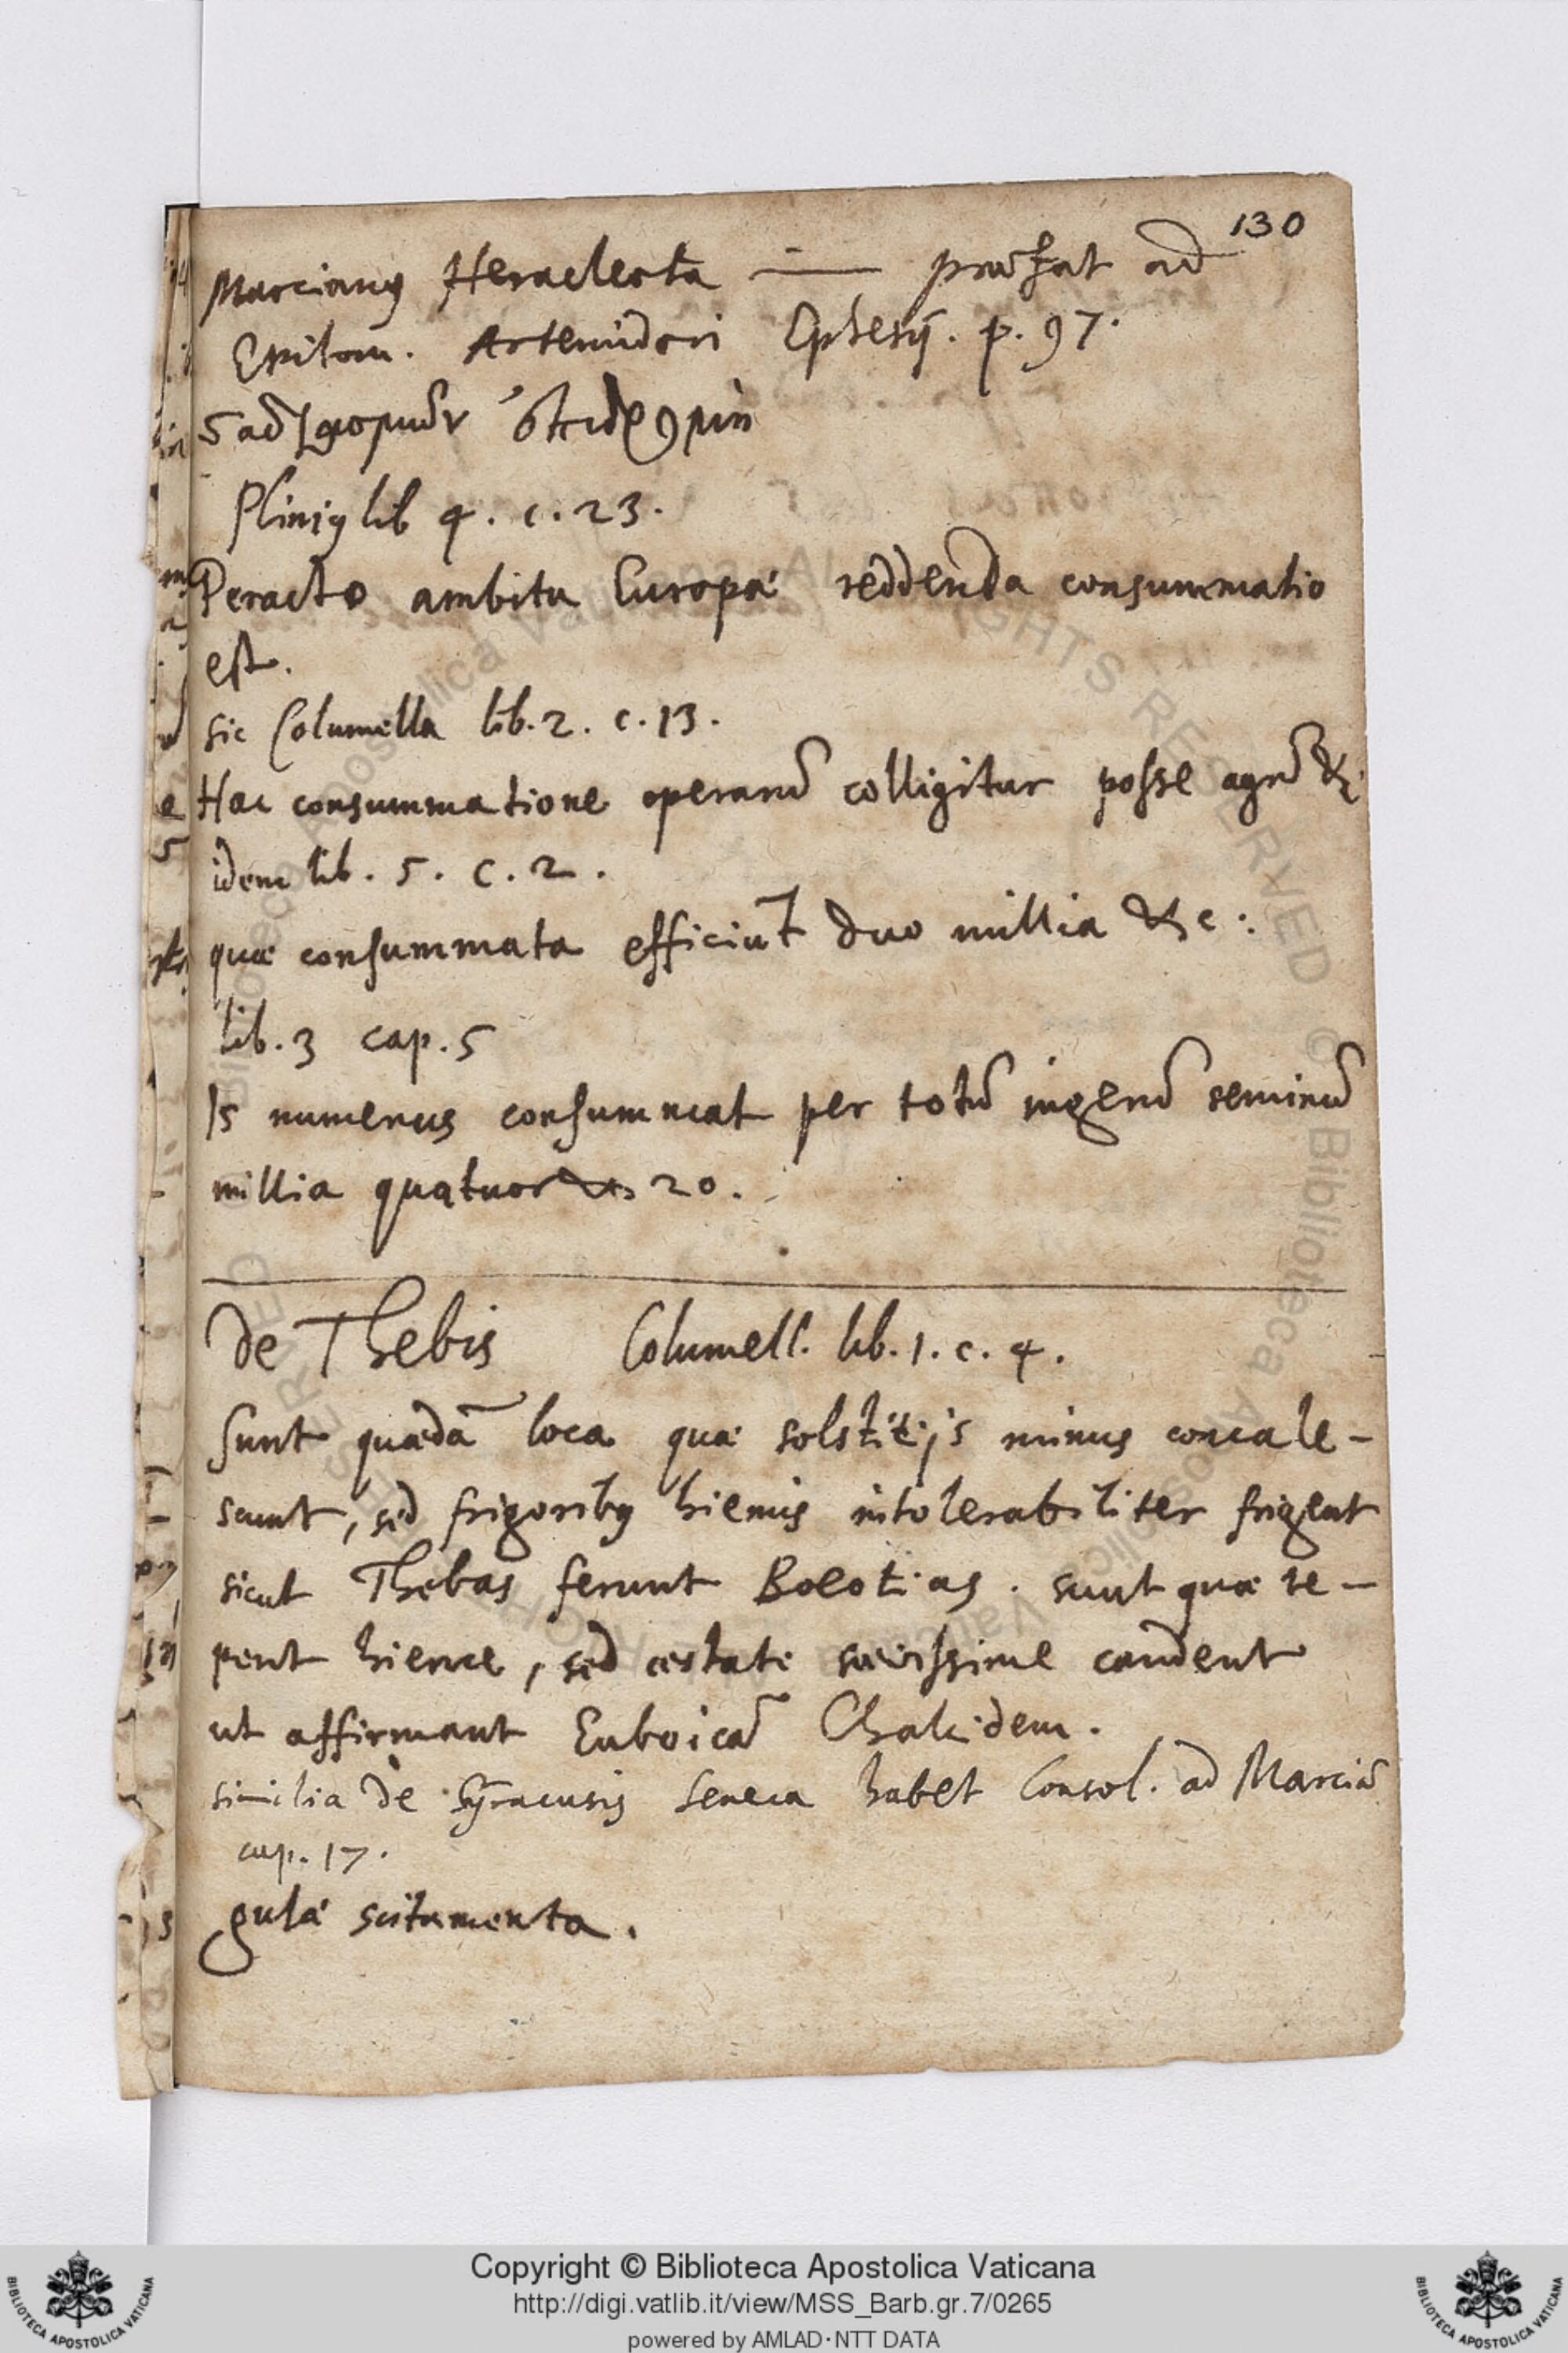 130
Marcianus Heracleota — præfat ad
Epitom. Artemidori Ephesij. p. 97.
Plinius lib 4. c. 23.
Peracto ambitu Europæ reddenda consummatio
est.
sic Columella lib. 2. c. 13.
Hac consummatione operarũ colligitur posse agrũ &c.
idem lib. 5. c. 2.
quæ consummata efficiũt duo millia &c:
lib. 3 cap. 5
Is numerus consummat per totũ iugerũ seminũ
millia quatuor 20.
De Thebis Columell. lib. 1. c. 4.
Sunt quædã loca quæ solstitijs minus concale-
scunt, sed frigoribus hiemis intolerabiliter frigent
sicut Thebas ferunt Boeotias. sunt quæ te-
pent hieme, sed æstate sævissime candent
ut affirmant Euboicã Chalcidem.
similia de Syracusis Seneca habet Consol. ad Marciã
cap. 17.
gulæ scitamenta.
Copyright © Biblioteca Apostolica Vaticana
http://digi.vatlib.it/view/MSS_Barb.gr.7/0265
powered by AMLAD·NTT DATA
BIBLIOTECA APOSTOLICA VATICANA
BIBLIOTECA APOSTOLICA VATICANA